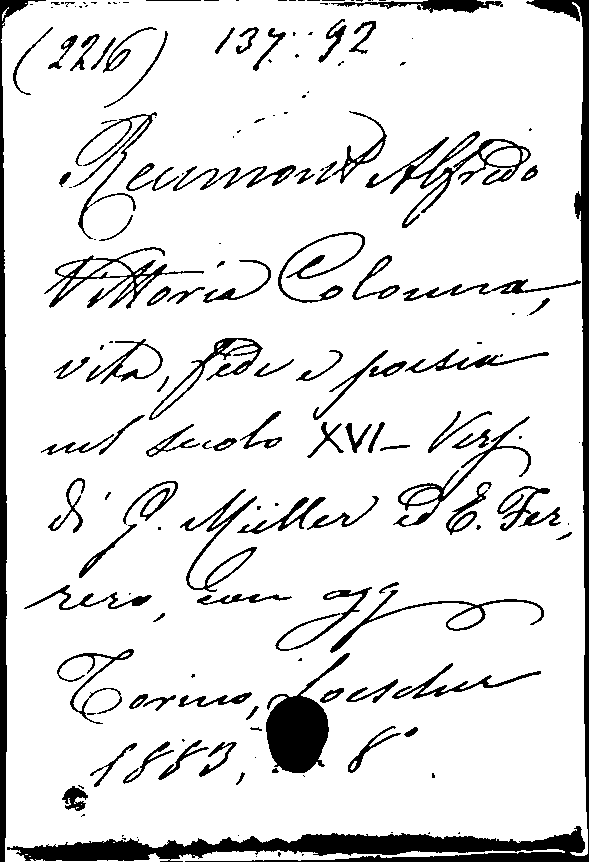 (2216) 137.. 92
Reumont Alfredo
Vittoria Colonna,
vita, fede e poesia
nel secolo XVI - Vers.
di G. Müller ed E. Fer,
rero, con agg
Torino, Loescher
1883, 8°.